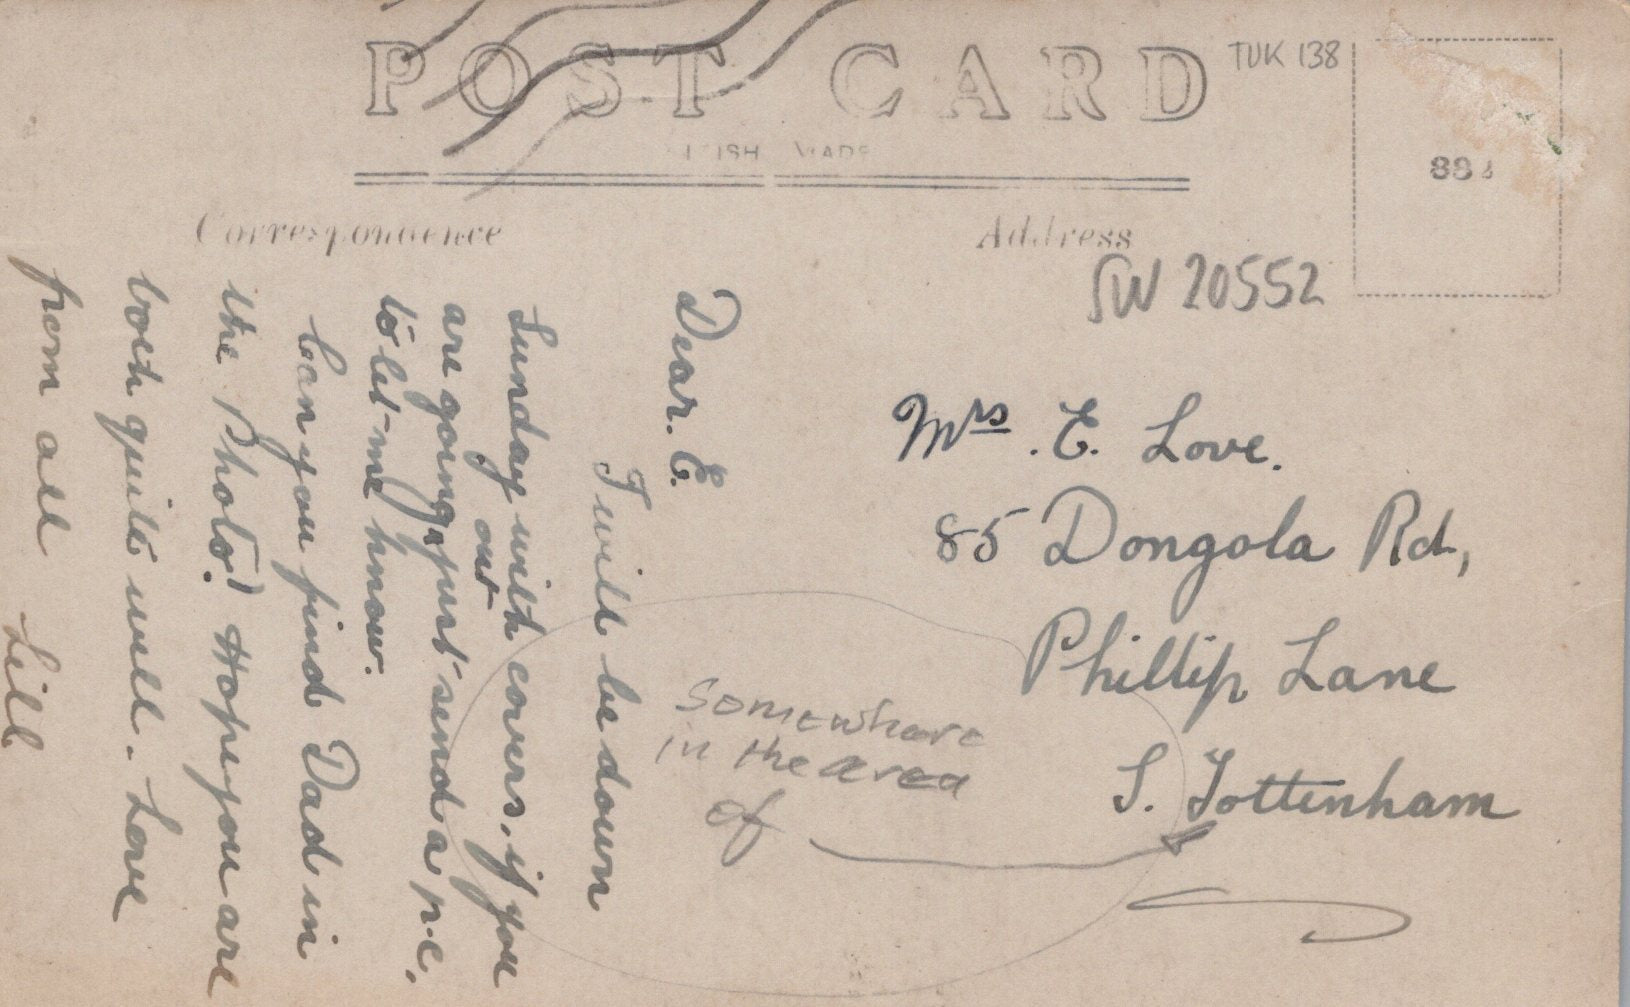 POST CARD
TUK 138
Correspondence
Address
SW 20552
Dear. E.
I will be down
Sunday with covers, if you
are going out just send a p.c.
to let me know.
Can you find Dad in
the Photo? Hope you are
both quite well. Love
from all Lill
Mrs. E. Love.
85 Dongola Rd,
Phillip Lane
S. Tottenham
Somewhere
in the area
of